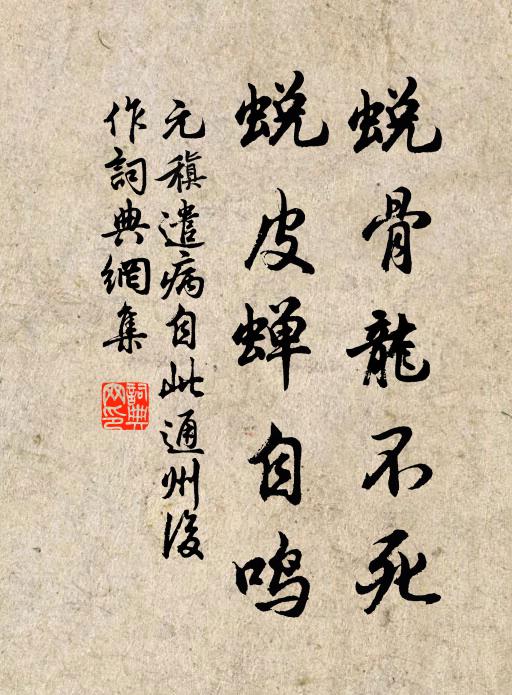 蜕骨龍不死
蜕皮蝉自鸣
元稹遣病自此通州後
作詞典網集
詞典
网印